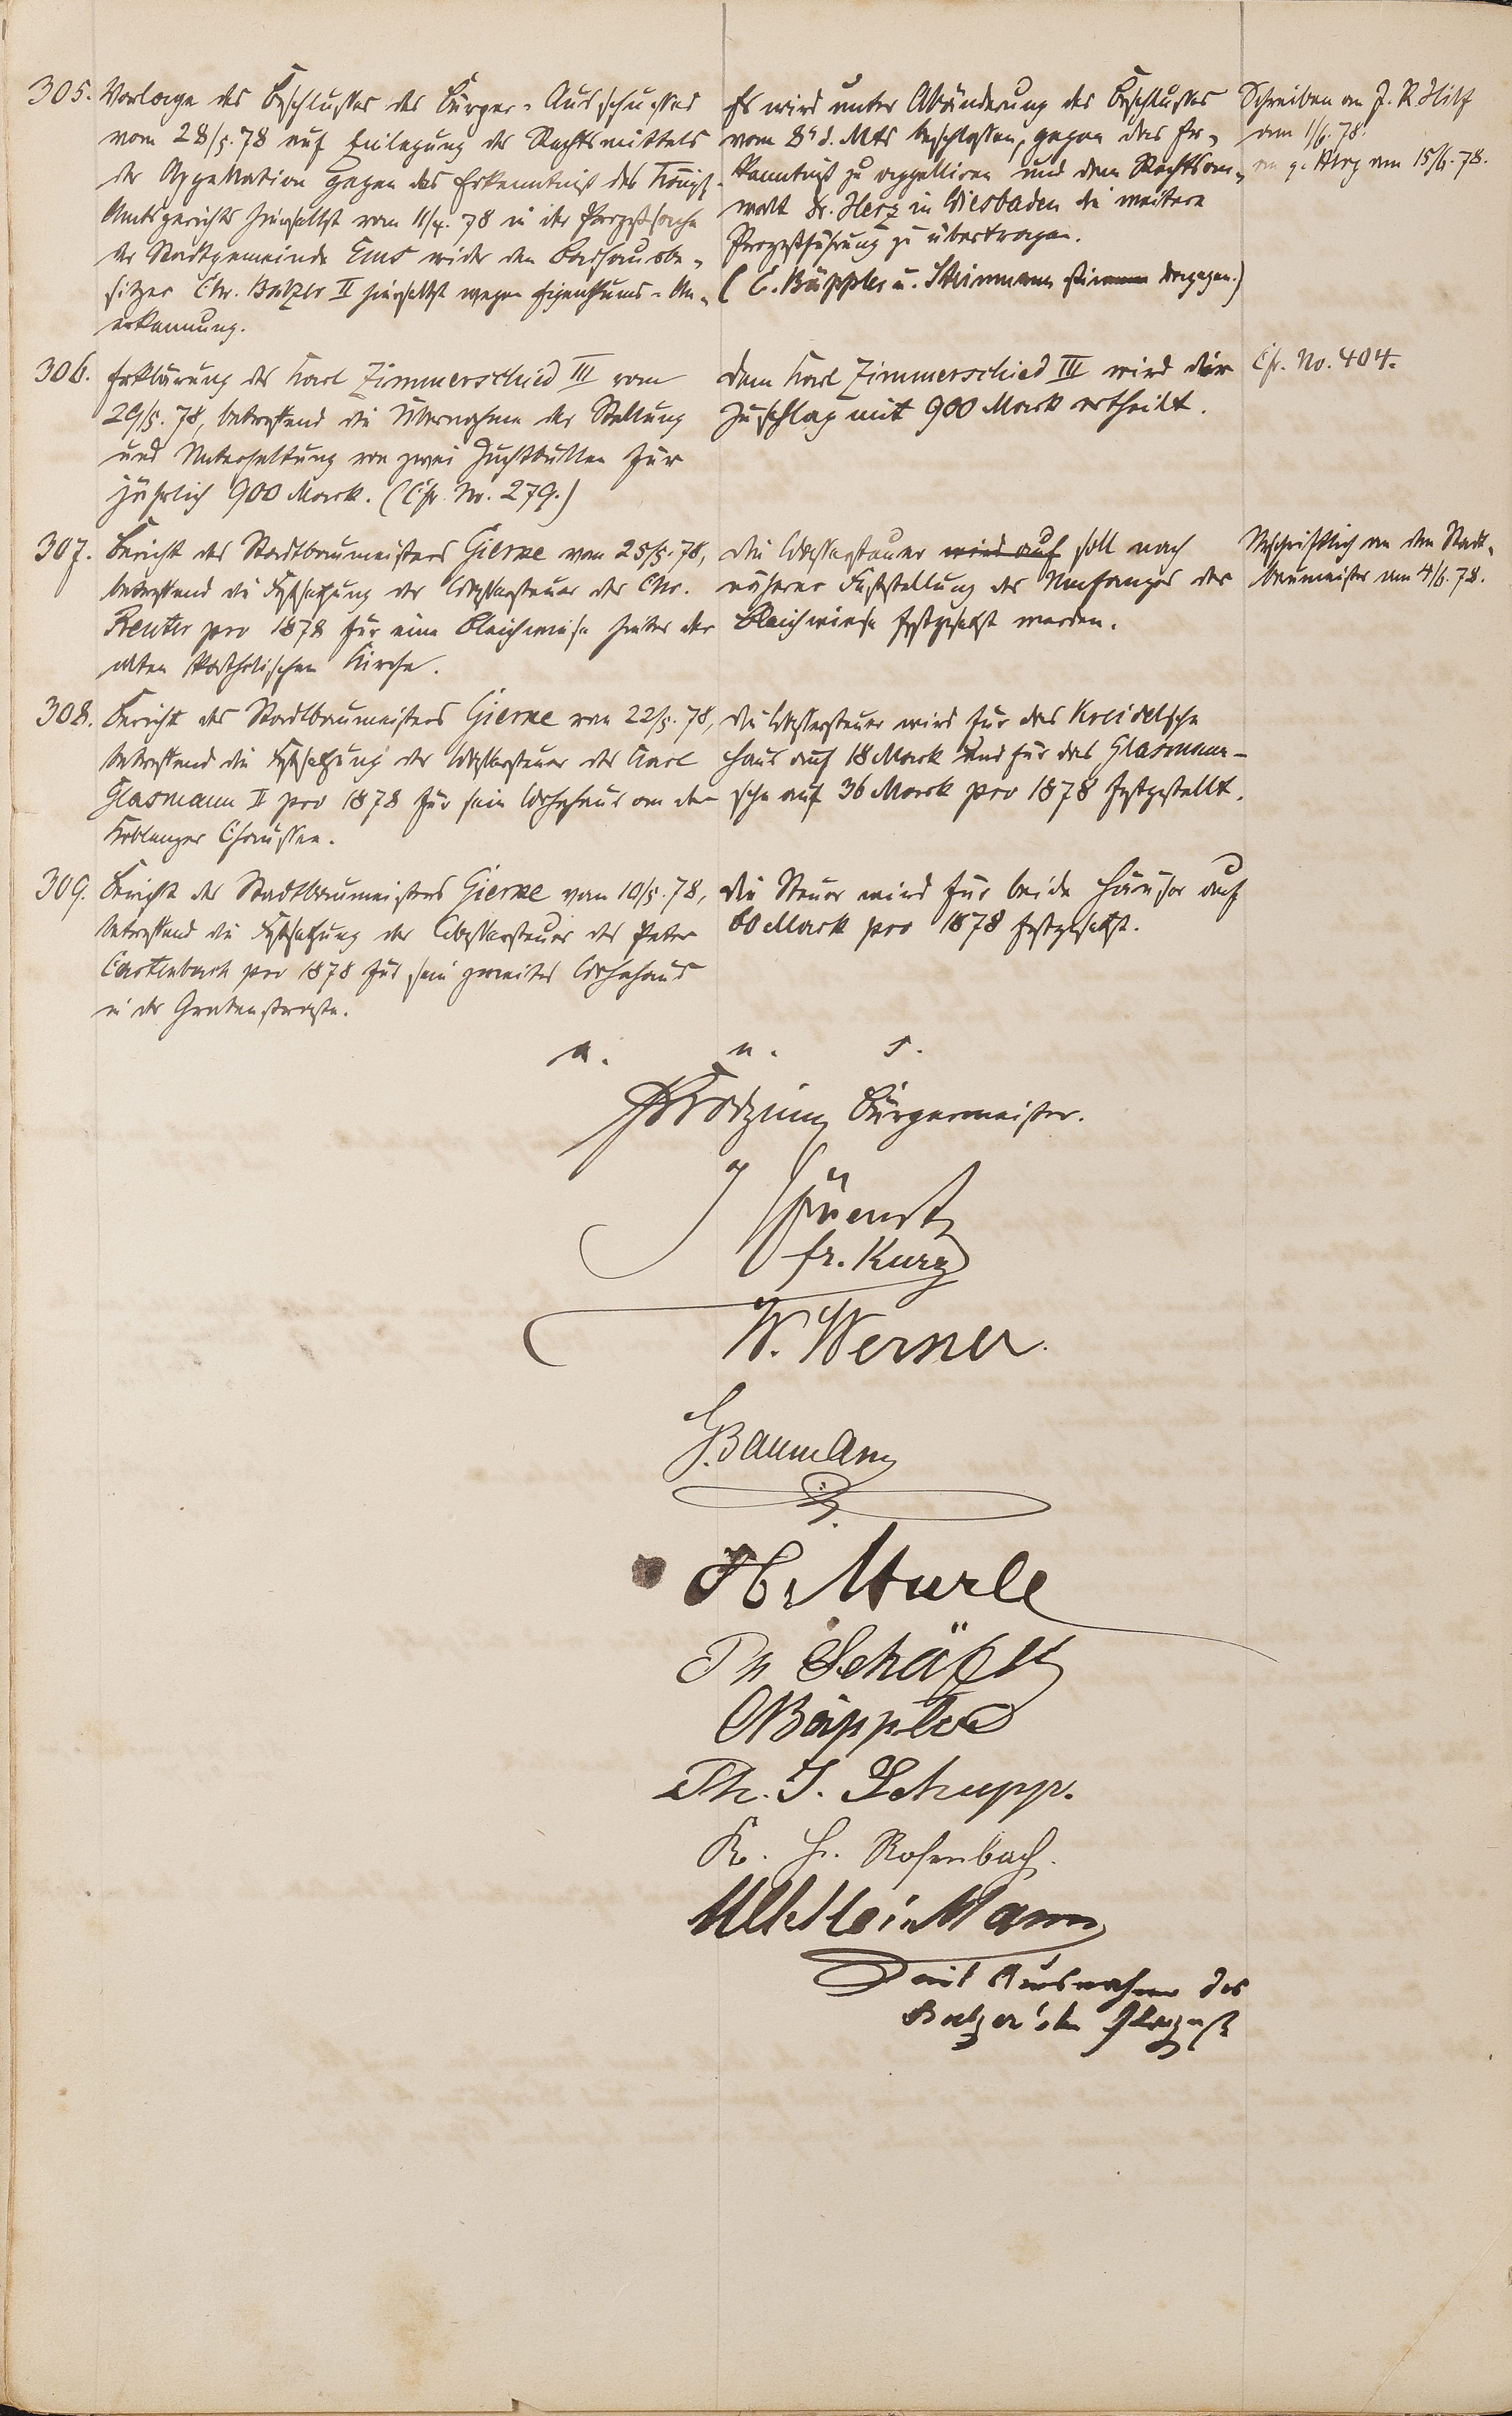 305.
Vorlage des Beschlusses des Bürger-Ausschusses
vom 28/5. 78 auf Einlegung des Rechtsmittels
der Appellation gegen das Erkenntniß des Königl.
Amtsgerichts hierselbst vom 11/4. 78 in der Prozeßsache
der Stadtgemeinde Ems wider den Badhausbe-
sitzer Chr. Balzer II hierselbst wegen Eigenthums-An-
erkennung.
Es wird unter Abänderung des Beschlusses
vom 8t d. Mts beschlossen, gegen das Er-
kenntniß zu appelliren und dem Rechtsan-
walt Dr. Herz in Wiesbaden die weitere
Prozeßführung zu übertragen.
(C. Bäppler u. Steinmann stimmen dagegen.)
Schreiben an J. R. Hilf
vom 11/6. 78.
am 15/6. 78.
306.
Erklärung des Karl Zimmerschied III vom
29/5. 78, betreffend die Übernahme der Stellung
und Unterhaltung von zwei Zuchtbullen für
jährlich 900 Mark. (Cfr. No. 279.)
Dem Karl Zimmerschied III wird der
Zuschlag mit 900 Mark ertheilt.
Cfr. No. 404.
307.
Bericht des Stadtbaumeisters Gierne vom 25/5. 78,
betreffend die Festsetzung der Wassersteuer des Chr.
Reuter pro 1878 für eine Bleichwiese hinter der
alten katholischen Kirche.
Die Wassersteuer wird auf soll nach
näherer Feststellung des Umfanges der
Bleichwiese festgesetzt werden.
Abschriftlich an den Stadt-
baumeister am 4/6. 78.
308.
Bericht des Stadtbaumeisters Gierne vom 22/5. 78,
betreffend die Festsetzung der Wassersteuer des Karl
Glasmann II pro 1878 für sein Wohnhaus an der
Koblenzer Chaussee.
Die Wassersteuer wird für das Kreidelsche
Haus auf 18 Mark und für das Glasmann-
sche auf 36 Mark pro 1878 festgestellt.
309.
Bericht des Stadtbaumeisters Gierne vom 10/5. 78,
betreffend die Festsetzung der Wassersteuer des Peter
Castenbach pro 1878 für sein zweites Wohnhaus
in der Grabenstraße.
Die Steuer wird für beide Häuser auf
60 Mark pro 1878 festgesetzt.
a. u. s.
Bürgermeister.
fr. Kurz
W. Werner.
Baumann
Murle
Ph Schäfer
C Bäppler
Ph. J. Schupp.
K. H. Rosenbach.
Steinmann
mit Ausnahme des
Balzer'schen Prozeß